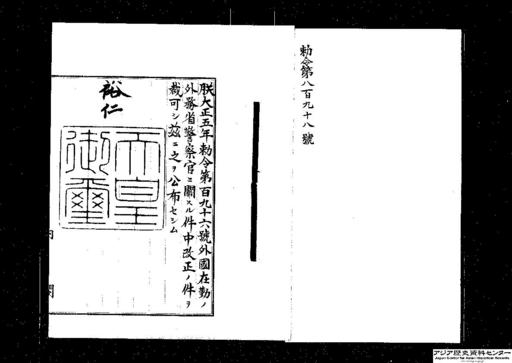 勅令第八百九十八號
朕大正五年勅令第百九十六號外國在勤ノ
外務省警察官ニ關スル件中改正ノ件ヲ
裁可シ茲ニ之ヲ公布セシム
裕仁
天皇
御璽
内閣
アジア歴史資料センター
Japan Center for Asian Historical Records